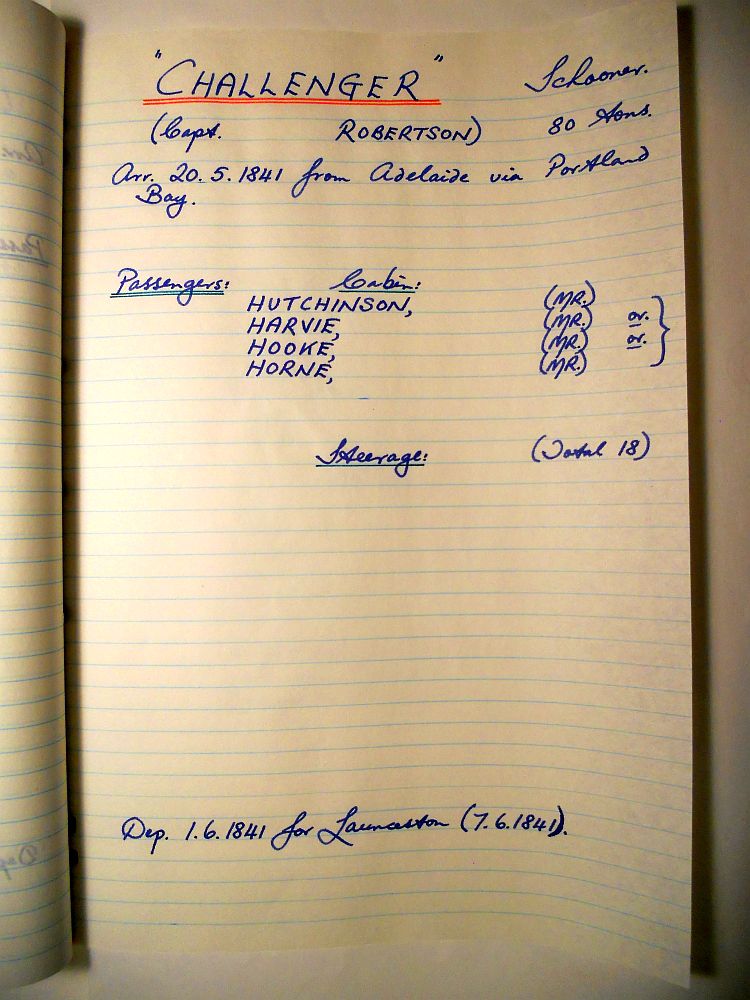 "CHALLENGER" Schooner.
(Capt. ROBERTSON) 80 tons.
Arr. 20.5.1841 from Adelaide via Portland
Bay.
Passengers: Cabin:
HUTCHINSON, (MR.)
HARVIE, (MR.) or.
HOOKE, (MR.) or.
HORNE, (MR.)
Steerage: (Total 18)
Dep. 1.6.1841 for Launceston (7.6.1841).